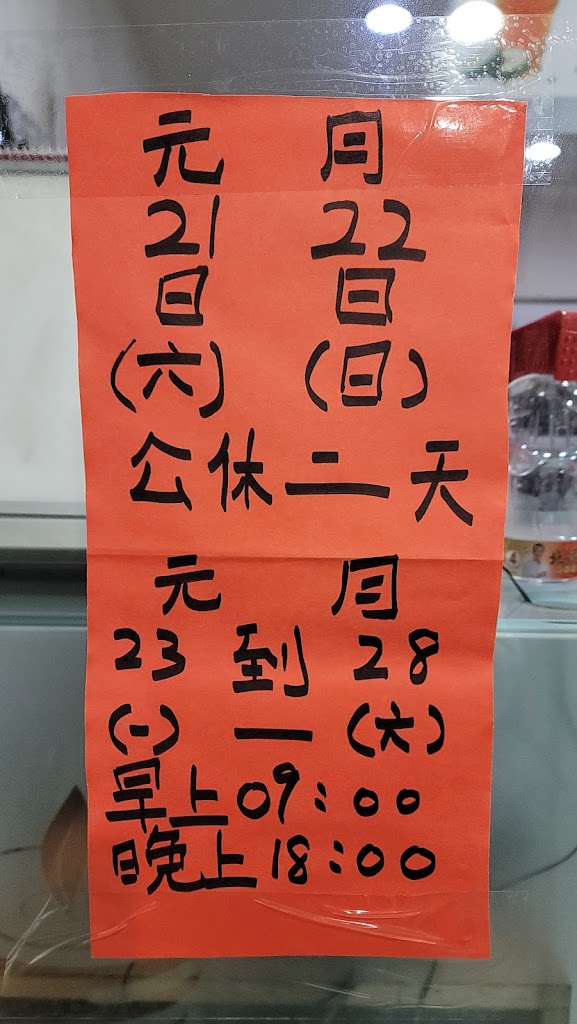 元 月
21 22
日 日
(六) (日)
公休二天
元 月
23 到 28
(一) 一 (六)
早上09:00
晚上18:00